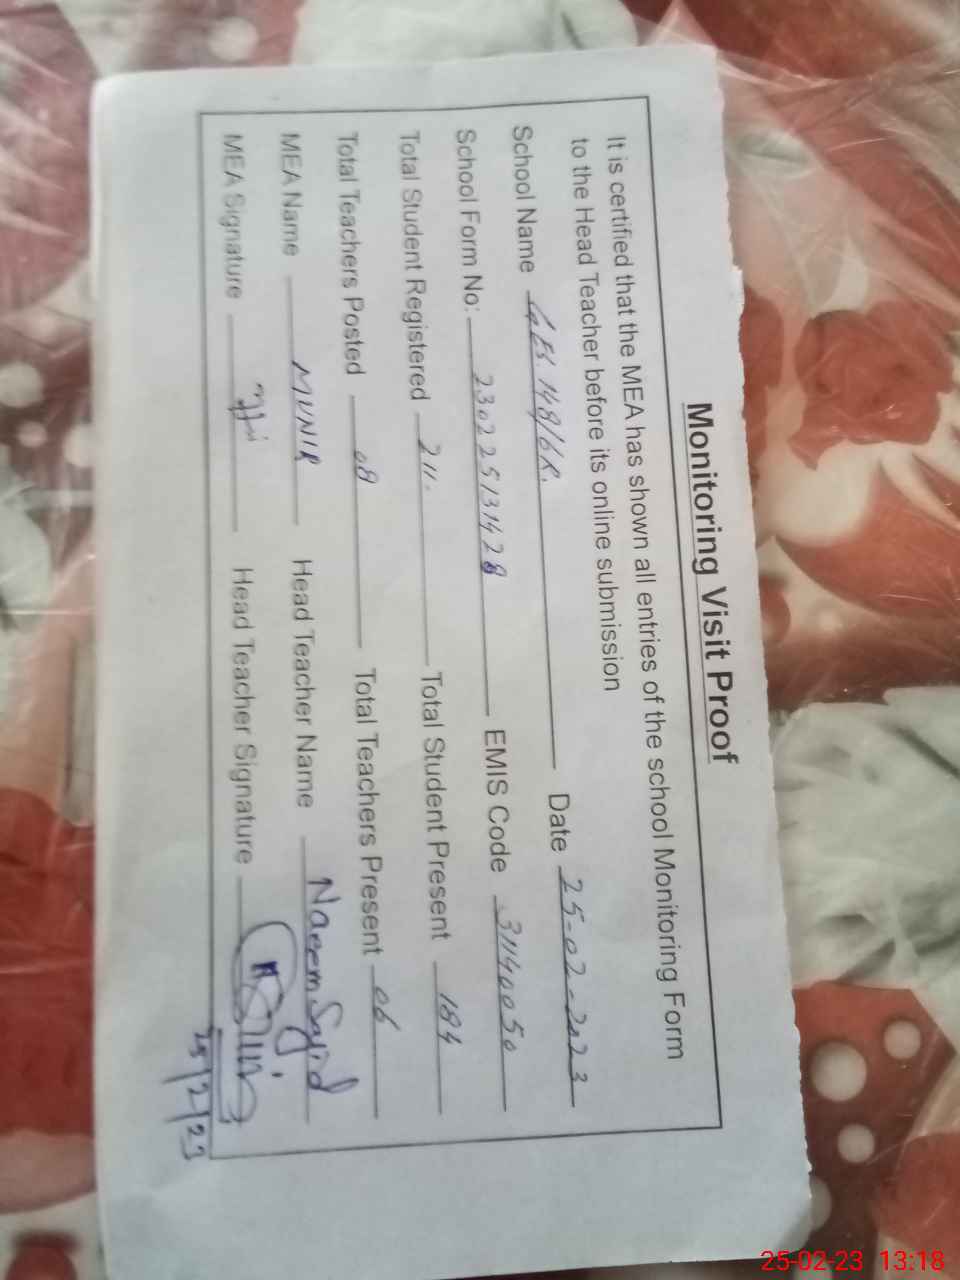 Monitoring Visit Proof
It is certified that the MEA has shown all entries of the school Monitoring Form
to the Head Teacher before its online submission
School Name GES. 148/6R. Date 25-02-2023
School Form No: 230225131428 EMIS Code 31140050
Total Student Registered 211. Total Student Present 184
Total Teachers Posted 08 Total Teachers Present 06
MEA Name MUNIR Head Teacher Name Naeem Sajid
MEA Signature Head Teacher Signature
25/2/23
25-02-23 13:18